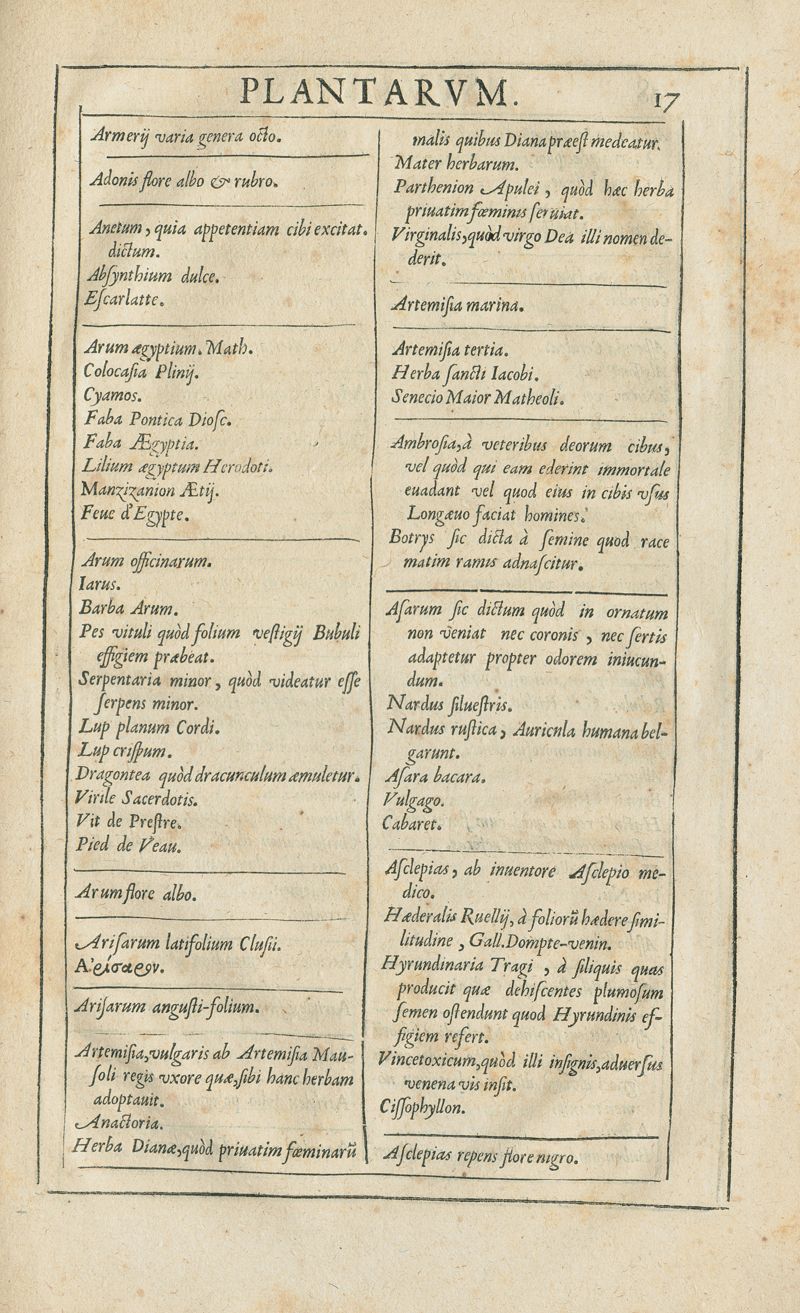 PLANTARVM. 17
Armerij varia genera octo.
Adonis flore albo & rubro.
Anetum, quia appetentiam cibi excitat.
dictum.
Abſynthium dulce.
Eſcarlatte.
Arum ægyptium. Math.
Colocaſia Plinij.
Cyamos.
Faba Pontica Dioſc.
Faba Ægyptia.
Lilium ægyptum Herodoti.
Manzizanion Ætij.
Feue d'Egypte.
Arum officinarum.
Iarus.
Barba Arum.
Pes vituli quòd folium veſtigij Bubuli
effigiem præbeat.
Serpentaria minor, quòd videatur eſſe
ſerpens minor.
Lup planum Cordi.
Lup criſpum.
Dragontea quòd dracunculum æmuletur.
Virile Sacerdotis.
Vit de Preſtre.
Pied de Veau.
Arum flore albo.
Ariſarum latifolium Cluſii.
Ἀρίσαρον.
Ariſarum anguſti-folium.
Artemiſia, vulgaris ab Artemiſia Mau-
ſoli regis vxore quæ, ſibi hanc herbam
adoptauit.
Anactoria.
Herba Dianæ, quòd priuatim fœminarũ
malis quibus Diana præeſt medeatur.
Mater herbarum.
Parthenion Apulei, quòd hæc herba
priuatim fœminis ſeruiat.
Virginalis, quòd virgo Dea illi nomen de-
derit.
Artemiſia marina.
Artemiſia tertia.
Herba ſancti Iacobi.
Senecio Maior Matheoli.
Ambroſia, à veteribus deorum cibus,
vel quòd qui eam ederint immortale
euadant vel quod eius in cibis vſus
Longæuo faciat homines.
Botrys ſic dicta à ſemine quod race
matim ramis adnaſcitur.
Aſarum ſic dictum quòd in ornatum
non veniat nec coronis, nec ſertis
adaptetur propter odorem iniucun-
dum.
Nardus ſilueſtris.
Nardus ruſtica, Auricula humana bel-
garunt.
Aſara bacara.
Vulgago.
Cabaret.
Aſclepias, ab inuentore Aſclepio me-
dico.
Hæderalis Ruellij, à foliorũ hædere ſimi-
litudine, Gall. Dompte-venin.
Hyrundinaria Tragi, à ſiliquis quas
producit quæ dehiſcentes plumoſum
ſemen oſtendunt quod Hyrundinis ef-
figiem refert.
Vincetoxicum, quòd illi inſignis, aduerſus
venena vis inſit.
Ciſſophyllon.
Aſclepias repens flore nigro.